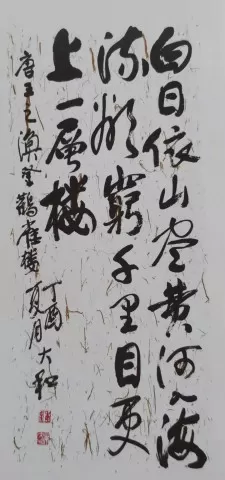 白日依山尽黄河入海
流欲窮千里目更
上一層楼
唐王之涣登鹳雀楼
丁酉夏月大和